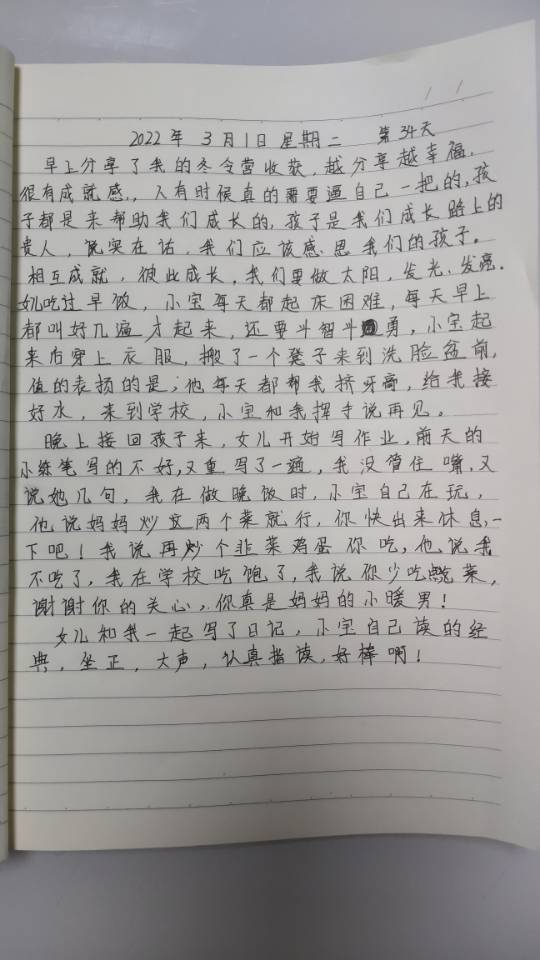 2022年 3月1日 星期二 第34天
早上分享了我的冬令营收获，越分享越幸福，
很有成就感，，人有时候真的需要逼自己一把的，孩
子都是来帮助我们成长的，孩子是我们成长路上的
贵人，说实在话，我们应该感恩我们的孩子。
相互成就，彼此成长，我们要做太阳，发光、发亮。
女儿吃过早饭，小宝每天都起床困难，每天早上
都叫好几遍才起来，还要斗智斗勇，小宝起
来后穿上衣服，搬了一个凳子来到洗脸盆前，
值的表扬的是，他每天都帮我挤牙膏，给我接
好水，来到学校，小宝和我挥手说再见。
晚上接回孩子来，女儿开始写作业，前天的
小练笔写的不好，又重写了一遍，我没管住嘴，又
说她几句，我在做晚饭时，小宝自己在玩，
他说妈妈炒这两个菜就行，你快出来休息一
下吧！我说再炒个韭菜鸡蛋你吃，他说我
不吃了，我在学校吃饱了，我说你少吃菜，
谢谢你的关心，你真是妈妈的小暖男！
女儿和我一起写了日记，小宝自己读的经
典，坐正，大声，认真指读，好棒啊！